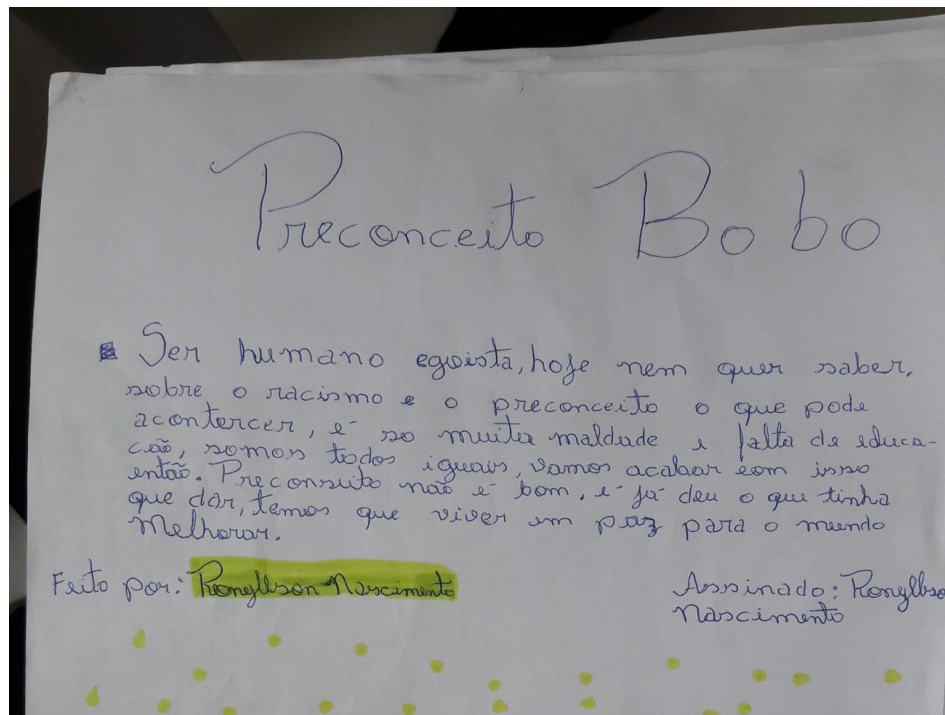 Preconceito Bobo
Ser humano egoista, hoje nem quer saber,
sobre o racismo e o preconceito o que pode
acontercer, é so muita maldade e falta de educa-
cão, somos todos iguais, vamos acabar com isso
então. Preconseito não é bom, e já deu o que tinha
que dar, temos que viver em paz para o mundo
Melhorar.
Feito por: Ronyllson Nascimento
Assinado: Ronyllso
Nascimento